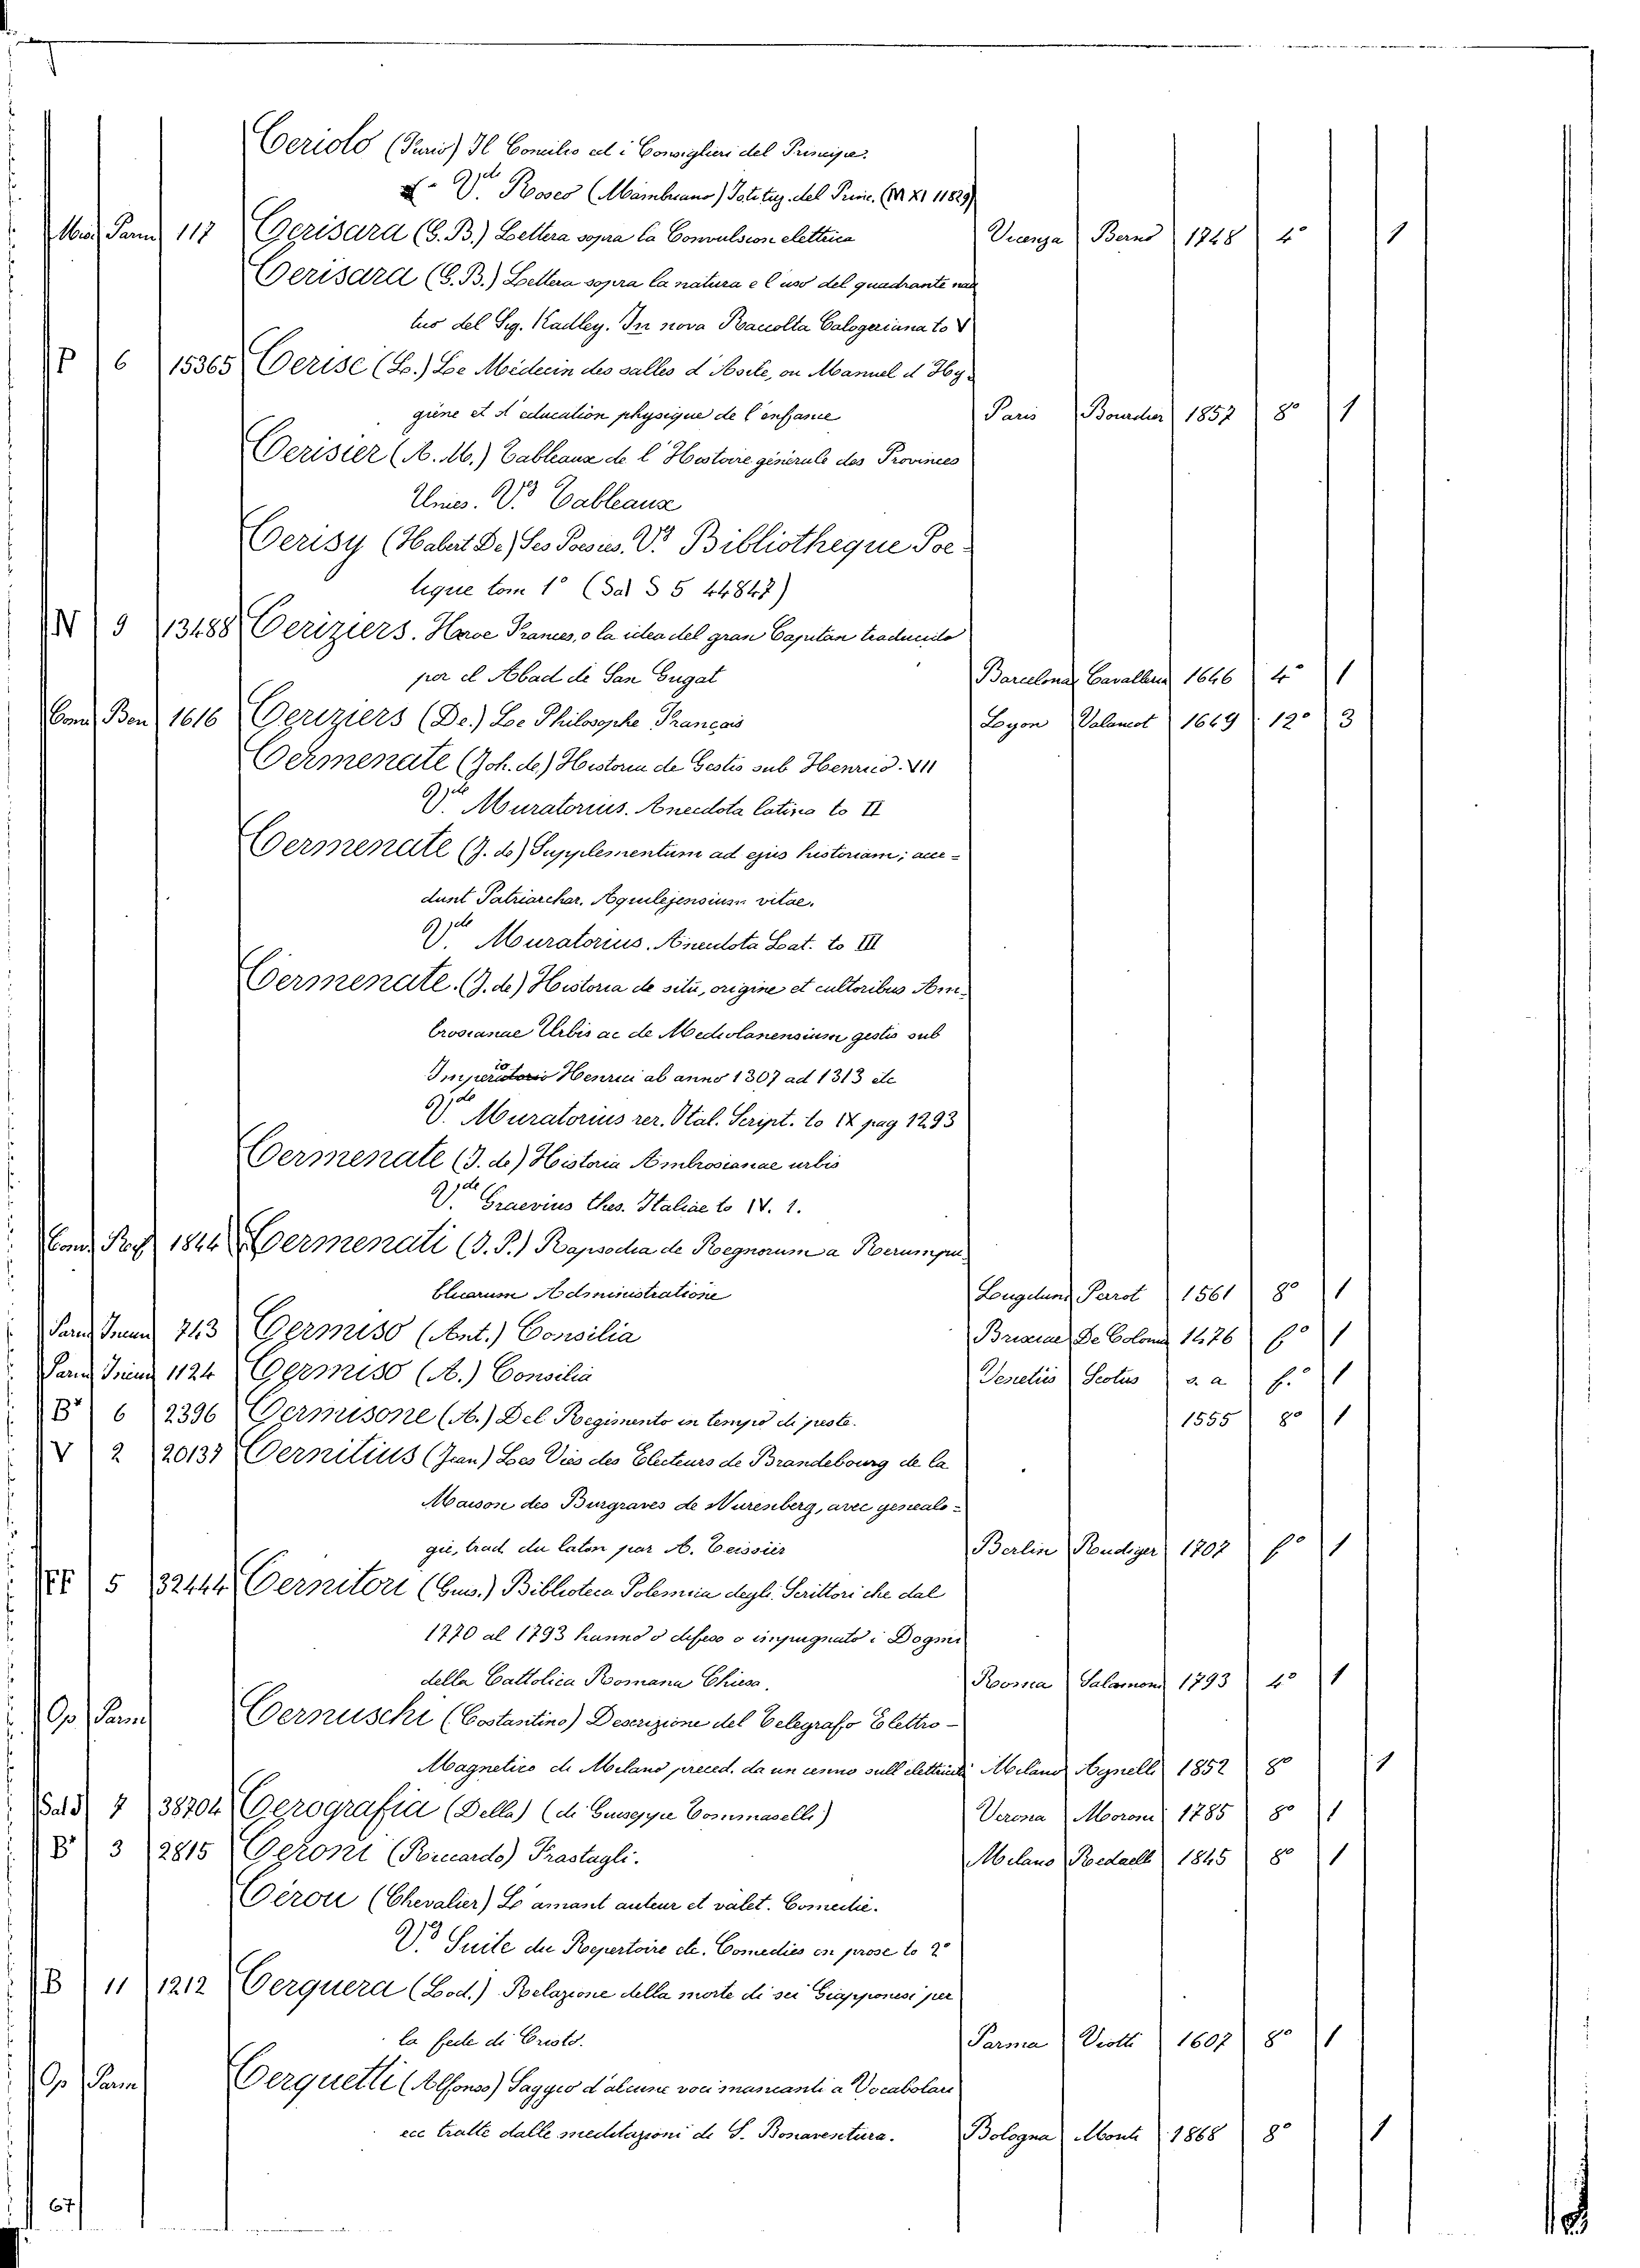 Ceriolo (Furio) Il Concilio ed i Consiglieri del Principe.
V.de Roseo (Mambriano) Istituz. del Princ. (M XI 11829)
Misc. Parm 117 Cerisara (G. B.) Lettera sopra la Convulsion elettrica Vicenza Berno 1748 4° 1
Cerisara (G. B.) Lettera sopra la natura e l uso del quadrante nau
tico del Sig. Hadley. In nova Raccolta Calogeriana to V
P 6 15365 Cerise (L.) Le Médecin des salles d'Asile, ou Manuel d'Hy-
giène et d'education physique de l'enfance Paris Bourdier 1857 8° 1
Cerisier (A. M.) Tableaux de l'Histoire générale des Provinces
Unies. V.s Tableaux
Cerisy (Habert De) Ses Poesies. V.s Bibliotheque Poe-
tique tom 1° (Sal S 5 44847)
N 9 13488 Ceriziers. Heroe Frances, o la idea del gran Capitan traducido
por el Abad de San Cugat Barcelona Cavalleria 1646 4° 1
Com Ben 1616 Ceriziers (De.) Le Philosophe Français Lyon Valancot 1649 12° 3
Cermenate (Joh. de) Historia de Gestis sub Henrico. VII
V.de Muratorius. Anecdota latina to II
Cermenate (J. de) Supplementum ad ejus historiam; acce-
dunt Patriarchar. Aquilejensium vitae.
V.de Muratorius. Anecdota Lat. to III
Cermenate. (J. de) Historia de situ, origine et cultoribus Am-
brosianae Urbis ac de Mediolanensium gestis sub
Imperio Henrici ab anno 1307 ad 1313 etc
V.de Muratorius rer. Ital. Script. to IX pag 1293
Cermenate (J. de) Historia Ambrosianae urbis
V.de Graevius thes. Italiae to IV. 1.
Com. 1844 Cermenati (J. P.) Rapsodia de Regnorum a Rerumpu-
blicarum Administratione Lugduni Parot 1561 8° 1
Parm 743 Cermiso (Ant.) Consilia Brixiae De Colonia 1476 f° 1
Parm 1124 Cermiso (A.) Consilia Venetiis Scotus s. a f.° 1
B* 6 2396 Cermisone (A.) Del Regimento in tempo di peste. 1555 8° 1
V 2 20137 Cernitius (Jean) Les Vies des Electeurs de Brandebourg de la
Maison des Burgraves de Nurenberg, avec genealo-
gie, trad du laton par A. Teissier Berlin Rudiger 1707 f° 1
FF 5 32444 Cernitori (Gius.) Biblioteca Polemica degli Scrittori che dal
1770 al 1793 hanno o difeso o impugnato i Dogmi
della Cattolica Romana Chiesa. Roma Salamoni 1793 4° 1
Op Parm Cernuschi (Costantino) Descrizione del Telegrafo Elettro-
Magnetico di Milano preced. da un cenno sull elettricità Milano Agnelli 1852 8° 1
Sal 7 38704 Cerografia (Della) (di Giuseppe Tommaselli) Verona Moroni 1785 8° 1
B* 3 2815 Ceroni (Riccardo) Frastagli. Milano Redaelli 1845 8° 1
Cérou (Chevalier) L'amant auteur et valet. Comedie.
V.s Suite du Repertoire etc. Comedies en prose to 2°
B 11 1212 Cerquera (Lod.) Relazione della morte di sei Giapponesi per
la fede di Cristo. Parma Viotti 1607 8° 1
Op Parm Cerquetti (Alfonso) Saggio d'alcune voci mancanti a Vocabolari
ecc tratte dalle meditazioni di S. Bonaventura. Bologna Monti 1868 8° 1
67